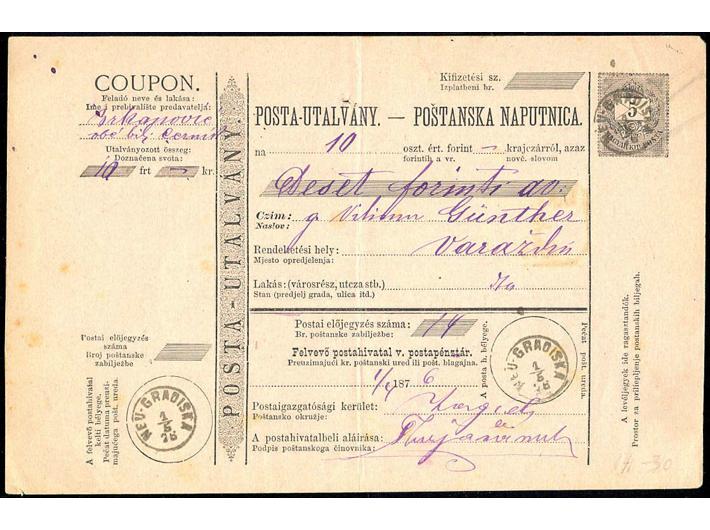 COUPON.
Feladó neve és lakása:
Ime i prebivalište predavatelja:
Utalványozott összeg:
Doznačena svota:
10 frt — kr.
Postai előjegyzés
száma
Broj poštanske
zabilježbe
A felvevő postahivatal
kelti bélyege.
Pečat datuma preuzi-
majućega pošt. ureda.
NEU-GRADISKA
1/5
POSTA-UTALVÁNY.
Kifizetési sz.
Izplatbeni br.
POSTA-UTALVÁNY. — POŠTANSKA NAPUTNICA.
na 10 oszt. ért. forint — krajczárról, azaz
forintih a vr. novč. slovom
Deset forinti av.
Czim: g Vilium Günther
Naslov:
Rendeltetési hely: Varaždin
Mjesto opredjelenja:
Lakás: (városrész, utcza stb.)
Stan (predjelj grada, ulica itd.)
Postai előjegyzés száma: 14
Br. poštanske zabilježbe:
Felvevő postahivatal v. postapénztár.
Preuzimajući kr. poštanski ured ili pošt. blagajna.
1/5 1876
Postaigazgatósági kerület: Zagreb
Poštansko okružje:
A postahivatalbeli aláirása:
Podpis poštanskoga činovnika:
A posta h. bélyege.
Pečat pošt. ureda.
NEU-GRADISKA
1/5
NEU-GRADISKA
5
A levéljegyek ide ragasztandók.
Prostor za prilepljenje postanskih biljegah.